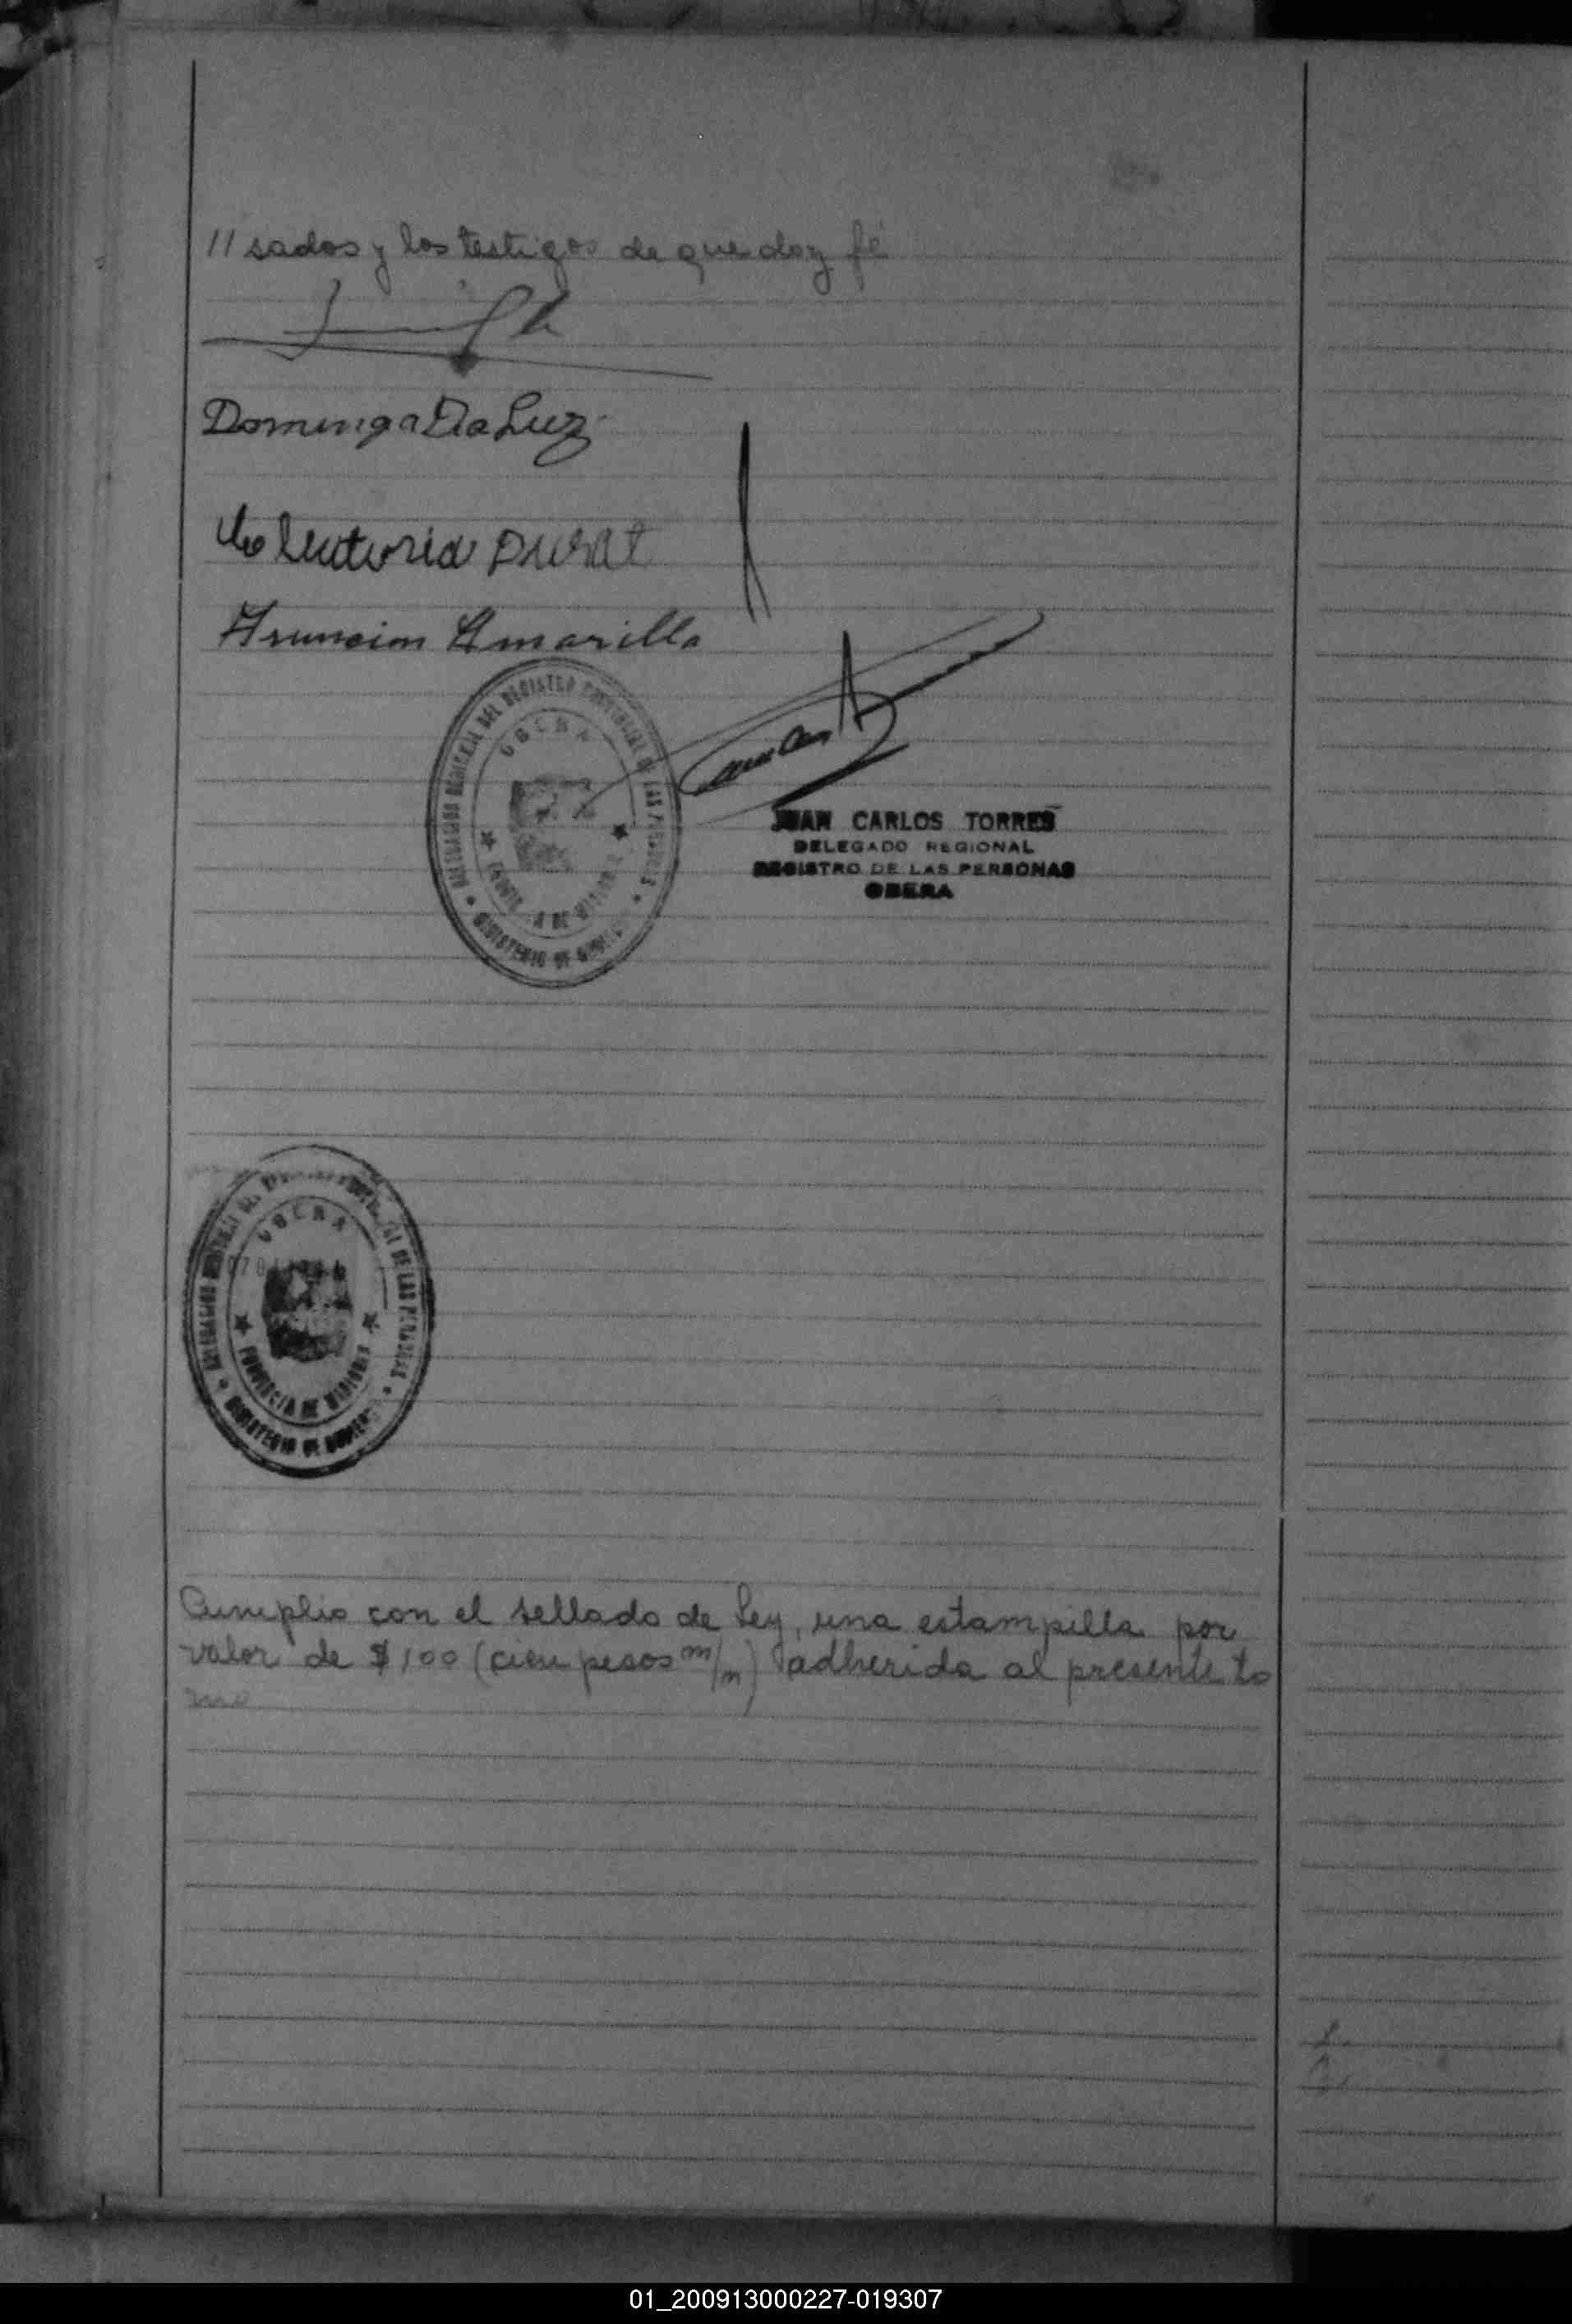 // sados y los testigos de que doy fé
Dominga Da Luz
Asuncion Amarilla
DELEGACION REGIONAL DEL REGISTRO PROVINCIAL DE LAS PERSONAS
OBERA
MINISTERIO DE GOBIERNO
JUAN CARLOS TORRES
DELEGADO REGIONAL
REGISTRO DE LAS PERSONAS
OBERA
DELEGACION REGIONAL DE LAS PERSONAS
OBERA
PROVINCIA DE MISIONES
MINISTERIO DE GOBIERNO
Cumplio con el sellado de Ley, una estampilla por
valor de $100 (cien pesos m/n) adherida al presente to
mo
01_200913000227-019307